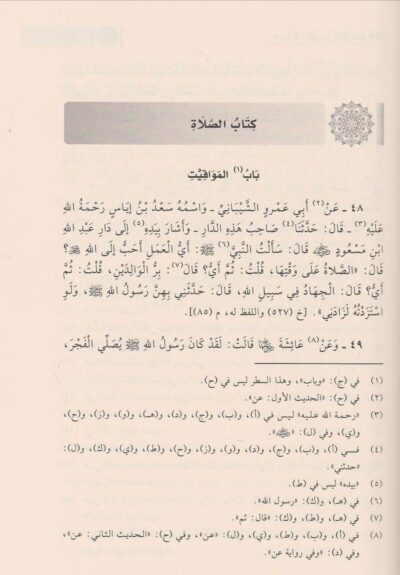 كِتَابُ الصَّلَاةِ
بَابُ(١) المَوَاقِيْتِ
٤٨ ـ عَنْ(٢) أَبِي عَمْرٍو الشَّيْبَانِيِّ ـ وَاسْمُهُ سَعْدُ بْنُ إِيَاسٍ رَحْمَةُ اللهِ
عَلَيْهِ(٣) ـ قَالَ: حَدَّثَنَا(٤) صَاحِبُ هَذِهِ الدَّارِ ـ وَأَشَارَ بِيَدِهِ(٥) إِلَى دَارِ عَبْدِ اللهِ
ابْنِ مَسْعُودٍ ﵁ قَالَ: سَأَلْتُ النَّبِيَّ(٦) ﷺ: أَيُّ العَمَلِ أَحَبُّ إِلَى اللهِ؟
قَالَ: «الصَّلَاةُ عَلَى وَقْتِهَا، قُلْتُ: ثُمَّ أَيُّ؟ قَالَ(٧): بِرُّ الْوَالِدَيْنِ، قُلْتُ: ثُمَّ
أَيُّ؟ قَالَ: الْجِهَادُ فِي سَبِيلِ اللهِ، قَالَ: حَدَّثَنِي بِهِنَّ رَسُولُ اللهِ ﷺ، وَلَوِ
اسْتَزَدْتُهُ لَزَادَنِي». [خ (٥٢٧) واللفظ له، م (٨٥)].
٤٩ ـ وَعَنْ(٨) عَائِشَةَ ﵂ قَالَتْ: لَقَدْ كَانَ رَسُولُ اللهِ ﷺ يُصَلِّي الْفَجْرَ،
(١) في (ج): «وباب»، وهذا السطر ليس في (ح).
(٢) في (ح): «الحديث الأول: عن».
(٣) «رحمة الله عليه» ليس في (أ)، (ب)، (ج)، (د)، (هـ)، (و)، (ز)، (ح)،
و(ي)، وفي (ل): «﵁».
(٤) فـي (أ)، (ب)، (ج)، (د)، (و)، (ز)، (ح)، (ط)، (ي)، (ك)، (ل):
«حدثني».
(٥) «بيده» ليس في (ط).
(٦) في (هـ)، و(ك): «رسول الله».
(٧) في (هـ)، (ط)، و(ك): «قال: ثم».
(٨) في (أ)، (ب)، (ط)، (ي)، و(ل): «عن»، وفي (ح): «الحديث الثاني: عن»،
وفي (د): «وفي رواية عن».